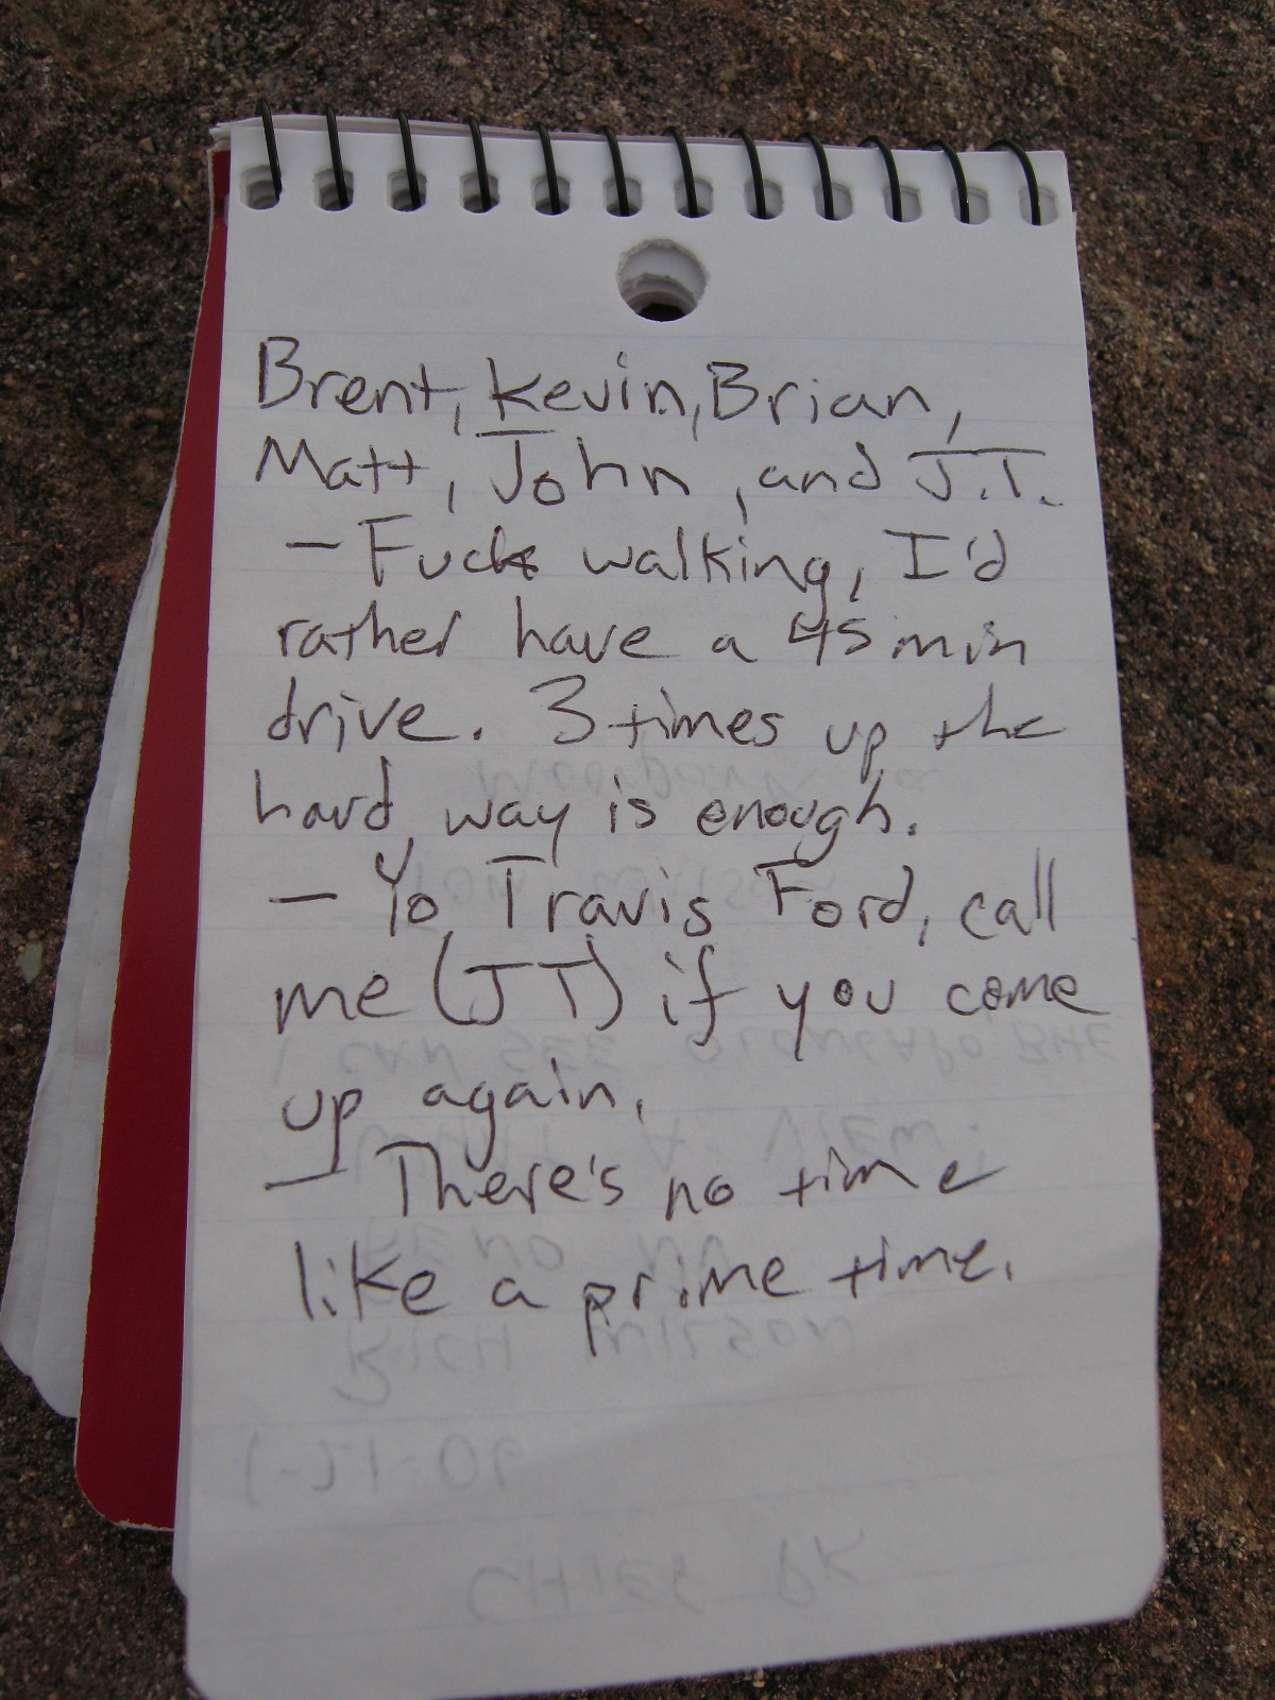 Brent, Kevin, Brian,
Matt, John, and J.T.
- Fuck walking, I'd
rather have a 45 min
drive. 3 times up the
hard way is enough.
- Yo Travis Ford, call
me (JT) if you come
up again.
- There's no time
like a prime time.